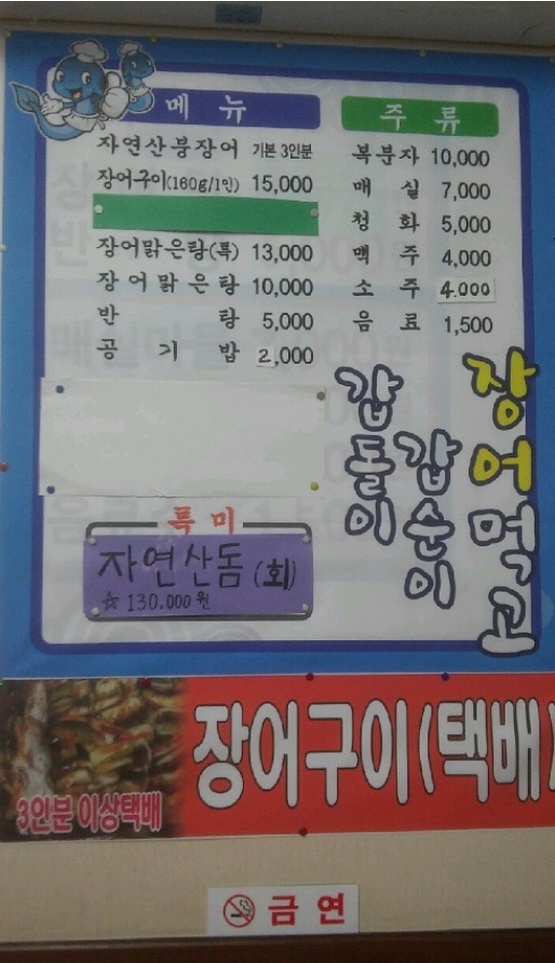 메 뉴
자연산붕장어 기본 3인분
장어구이(160g/1인) 15,000
장어맑은탕(특) 13,000
장어맑은탕 10,000
반 탕 5,000
공 기 밥 2,000
특미
자연산돔 (회)
☆ 130.000원
주 류
복분자 10,000
매 실 7,000
청 화 5,000
맥 주 4,000
소 주 4.000
음 료 1,500
장어먹고
갑순이
갑돌이
장어구이(택배)
3인분 이상택배
금 연